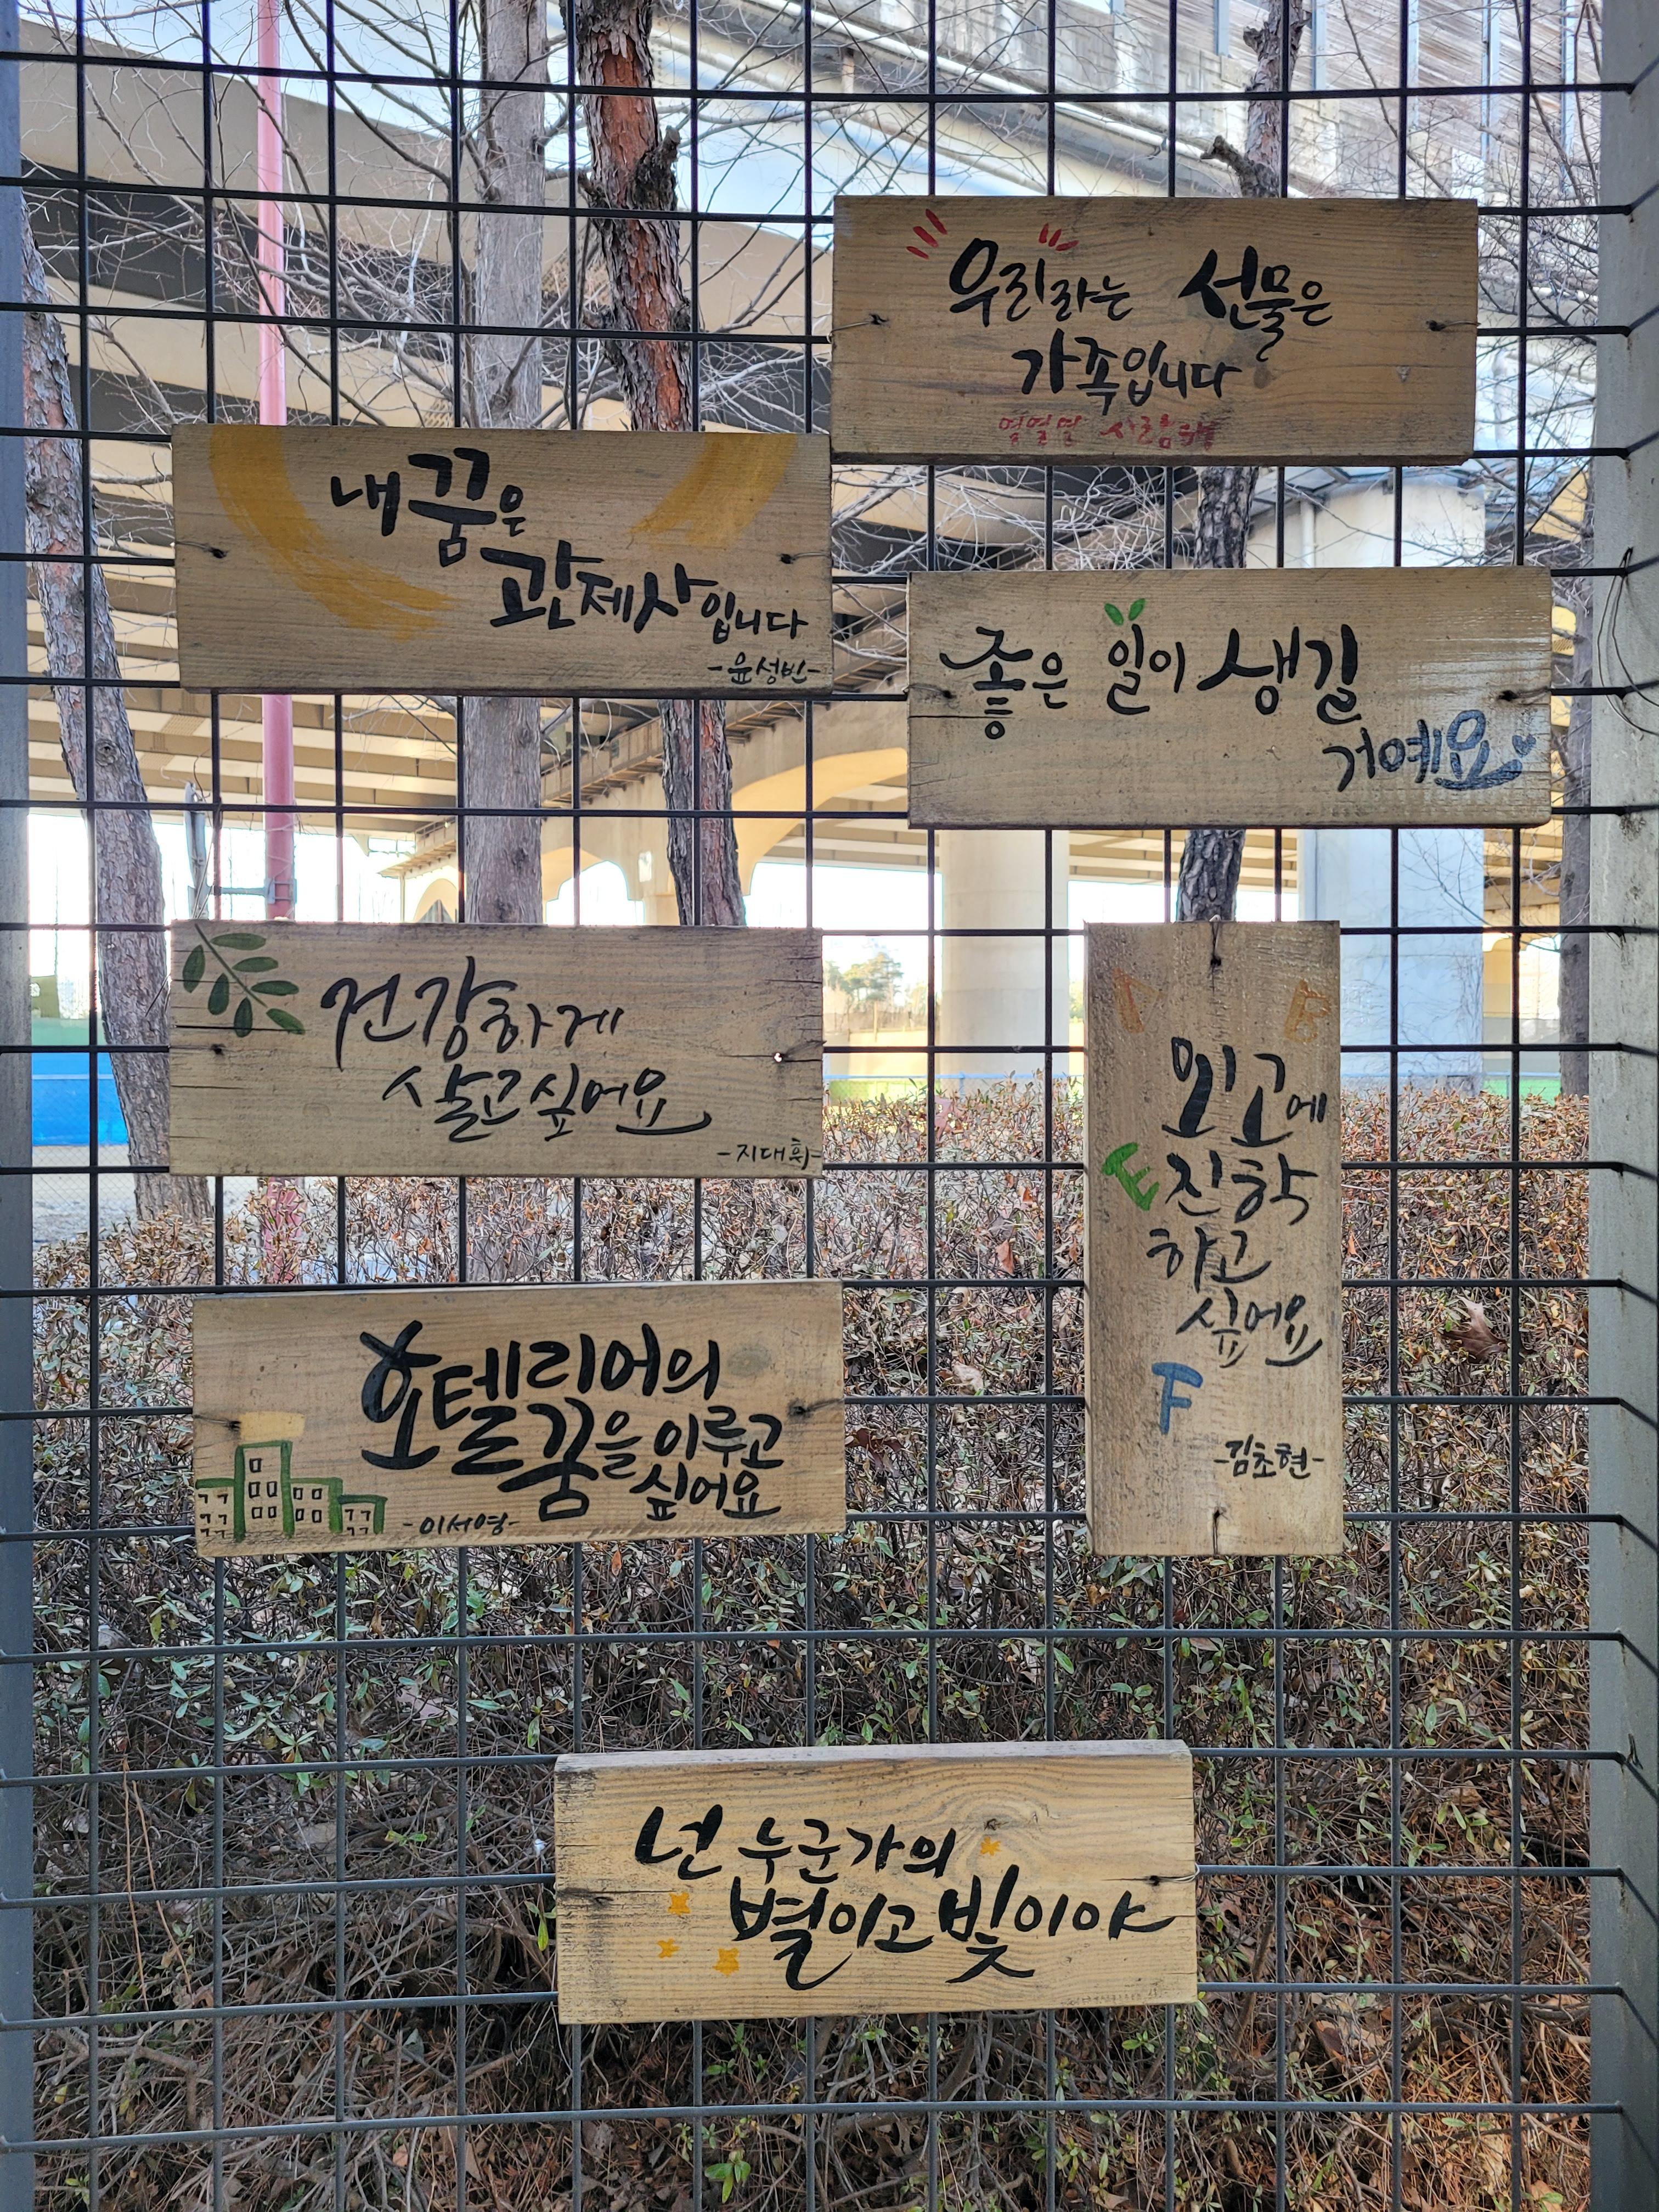 우리라는 선물은
가족입니다
내 꿈은
관제사입니다
-윤성빈-
좋은 일이 생길
거예요
건강하게
살고 싶어요
-지대휘-
외고에
E 진학
하고
싶어요
F
-김초현-
호텔리어의
꿈을 이루고
싶어요
-이서영-
넌 누군가의
별이고 빛이야